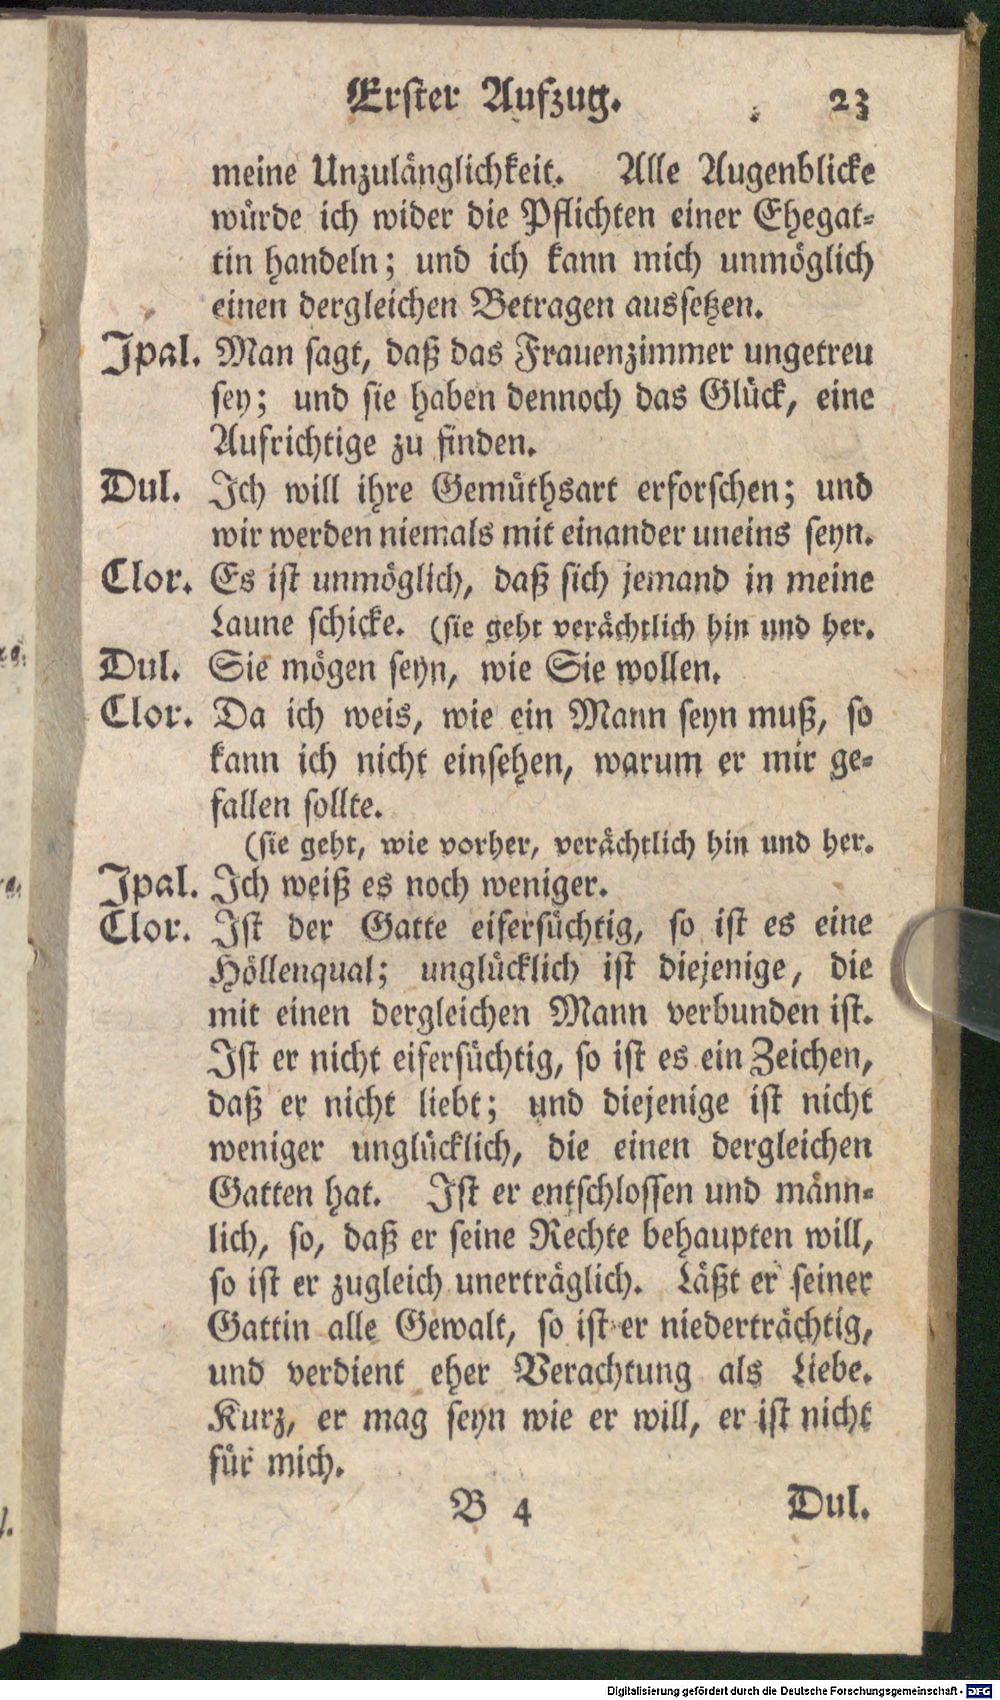 Erster Aufzug. 23
meine Unzulänglichkeit. Alle Augenblicke
würde ich wider die Pflichten einer Ehegat-
tin handeln; und ich kann mich unmöglich
einen dergleichen Betragen aussetzen.
Ipal. Man sagt, daß das Frauenzimmer ungetreu
sey; und sie haben dennoch das Glück, eine
Aufrichtige zu finden.
Dul. Ich will ihre Gemüthsart erforschen; und
wir werden niemals mit einander uneins seyn.
Clor. Es ist unmöglich, daß sich jemand in meine
Laune schicke. (sie geht verächtlich hin und her.
Dul. Sie mögen seyn, wie Sie wollen.
Clor. Da ich weis, wie ein Mann seyn muß, so
kann ich nicht einsehen, warum er mir ge-
fallen sollte.
(sie geht, wie vorher, verächtlich hin und her.
Ipal. Ich weiß es noch weniger.
Clor. Ist der Gatte eifersüchtig, so ist es eine
Höllenqual; unglücklich ist diejenige, die
mit einen dergleichen Mann verbunden ist.
Ist er nicht eifersüchtig, so ist es ein Zeichen,
daß er nicht liebt; und diejenige ist nicht
weniger unglücklich, die einen dergleichen
Gatten hat. Ist er entschlossen und männ-
lich, so, daß er seine Rechte behaupten will,
so ist er zugleich unerträglich. Läßt er seiner
Gattin alle Gewalt, so ist er niederträchtig,
und verdient eher Verachtung als Liebe.
Kurz, er mag seyn wie er will, er ist nicht
für mich.
B 4 Dul.
Digitalisierung gefördert durch die Deutsche Forschungsgemeinschaft - DFG